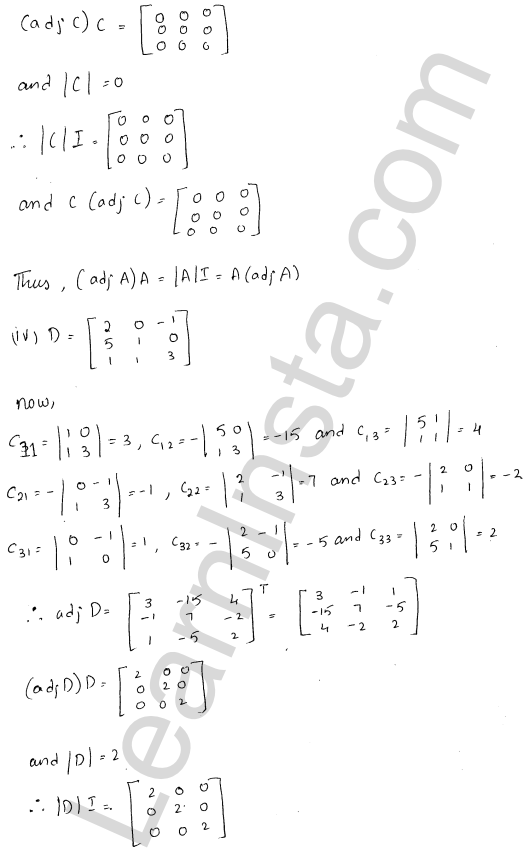 (adj C) C = [0 0 0; 0 0 0; 0 0 0]
and |C| = 0
∴ |C| I = [0 0 0; 0 0 0; 0 0 0]
and C (adj C) = [0 0 0; 0 0 0; 0 0 0]
Thus, (adj A) A = |A| I = A (adj A)
(iv) D = [2 0 -1; 5 1 0; 1 1 3]
now,
C₁₁ = |1 0; 1 3| = 3, C₁₂ = -|5 0; 1 3| = -15 and C₁₃ = |5 1; 1 1| = 4
C₂₁ = -|0 -1; 1 3| = -1, C₂₂ = |2 -1; 1 3| = 7 and C₂₃ = -|2 0; 1 1| = -2
C₃₁ = |0 -1; 1 0| = 1, C₃₂ = -|2 -1; 5 0| = -5 and C₃₃ = |2 0; 5 1| = 2
∴ adj D = [3 -15 4; -1 7 -2; 1 -5 2]ᵀ = [3 -1 1; -15 7 -5; 4 -2 2]
(adj D) D = [2 0 0; 0 2 0; 0 0 2]
and |D| = 2
∴ |D| I = [2 0 0; 0 2 0; 0 0 2]
LearnInsta.com